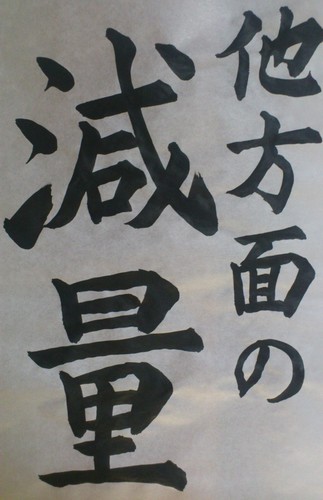 他方面の
減量